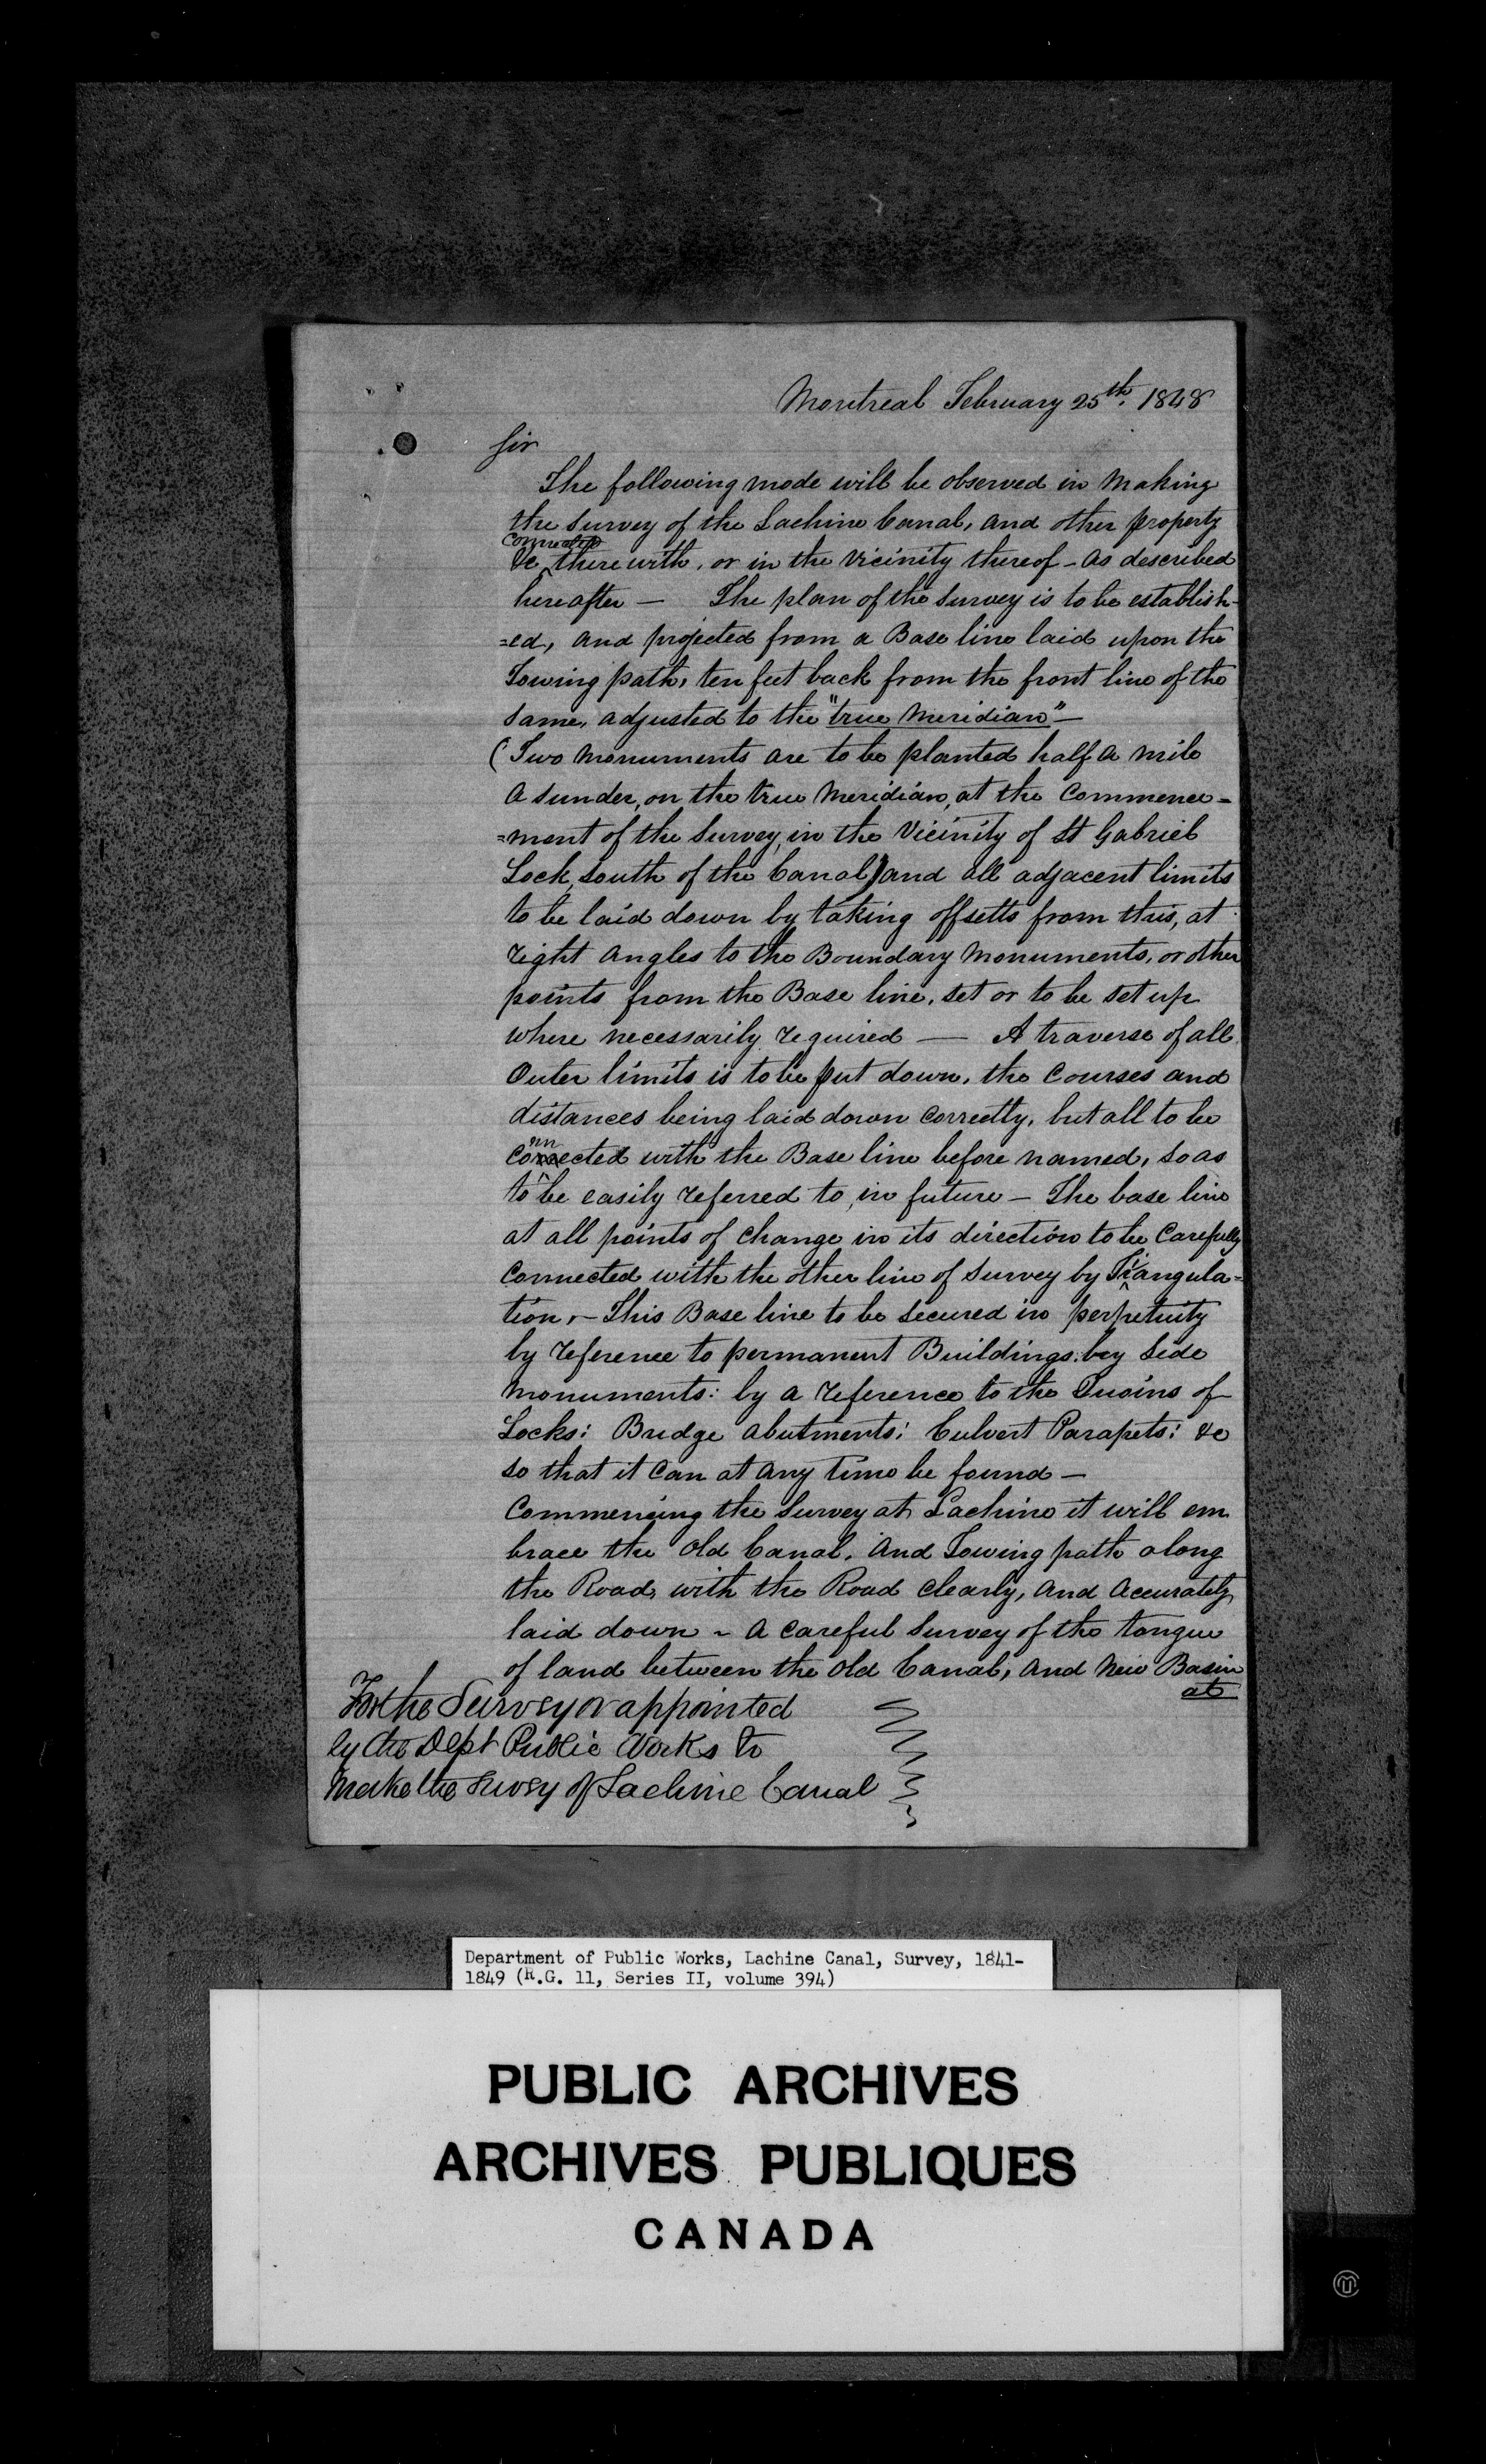 Montreal February 25th. 1848
Sir
The following mode will be observed in Making
the Survey of the Lachine Canal, and other property
connected
&c therewith, or in the Vicinity thereof - as described
hereafter — The plan of the Survey is to be establish-
=ed, and projected from a Base line laid upon the
Towing path, ten feet back from the front line of the
Same, adjusted to the "true Meridian" —
(Two Monuments are to be planted half a mile
a sunder, on the true Meridian, at the Commence=
=ment of the Survey, in the Vicinity of St Gabriel
Lock, South of the Canal) and all adjacent limits
to be laid down by taking offsetts from this, at
right angles to the Boundary Monuments, or other
points from the Base line, set or to be set up
where necessarily required — A traverse of all
Outer limits is to be put down, the Courses and
distances being laid down Correctly, but all to be
nn
Connected with the Base line before named, so as
to be easily referred to, in future — The base line
at all points of Change in its direction to be Carefully
Connected with the other line of Survey by Triangula=
tion, - This Base line to be Secured in perpetuity
by reference to permanent Buildings: bey Side
Monuments: by a reference to the Quoins of
Locks: Bridge abutments: Culvert Parapets: &c
so that it Can at any time be found —
Commencing the Survey at Lachine it will em
brace the Old Canal, and Towing path along
the Road, with the Road Clearly, and Accurately
laid down - A Careful Survey of the tongue
of land between the old Canal, and New Basin
at
For the Surveyor appointed
by the Dept Public Works to
Make the Survey of Lachine Canal
Department of Public Works, Lachine Canal, Survey, 1841-
1849 (R.G. 11, Series II, volume 394)
PUBLIC ARCHIVES
ARCHIVES PUBLIQUES
CANADA